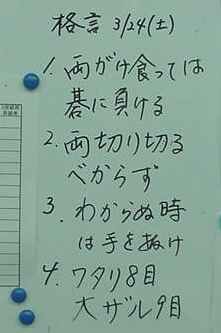 格言 3/24(土)
1. 両がけ食っては
碁に負ける
2. 両切り切る
べからず
3. わからぬ時
は手を抜け
4. ワタリ8目
大ザル9目